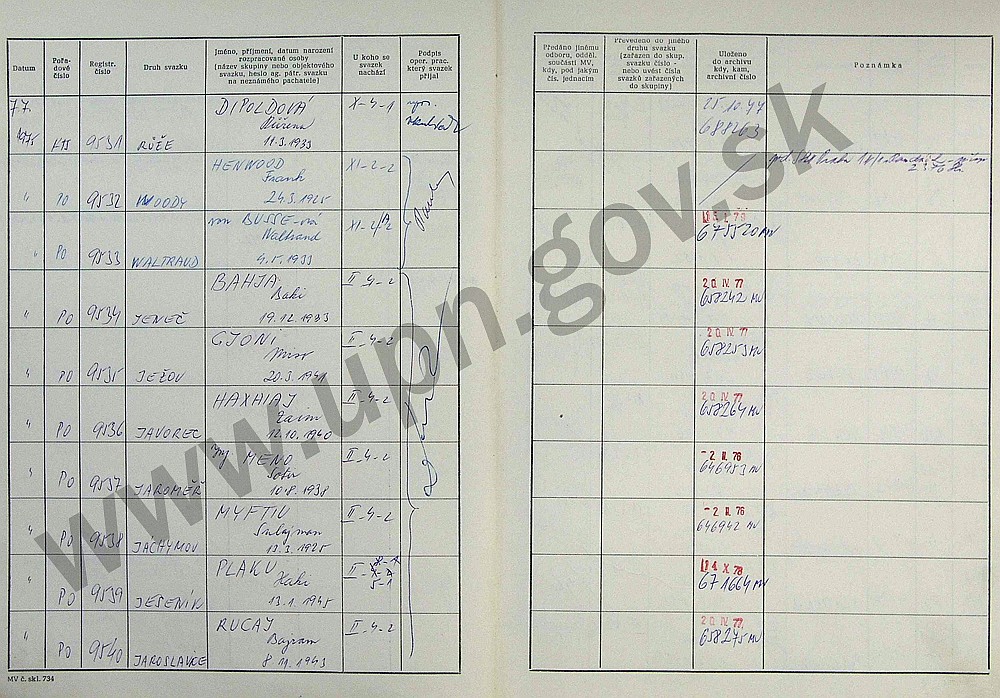 Datum
Pořa-
dové
číslo
Registr.
číslo
Druh svazku
Jméno, příjmení, datum narození
rozpracované osoby
(název skupiny nebo objektového
svazku, heslo ag. pátr. svazku
na neznámého pachatele)
U koho se
svazek
nachází
Podpis
oper. prac.
který svazek
přijal
Předáno jinému
odboru, odděl.
součásti MV,
kdy, pod jakým
čís. jednacím
Převedeno do jiného
druhu svazku
(zařazen do skup.
svazku číslo -
nebo uvést čísla
svazků zařazených
do skupiny)
Uloženo
do archivu
kdy, kam,
archivní číslo
Poznámka
7.7.
1975 9531 RŮŽE DIPOLDOVÁ
Růžena
11.3.1933 X-4-1
25.10.77
688263
" PO 9532 WOODY HENWOOD
Frank
24.3.1925 XI-2-2
" PO 9533 WALTRAUD von BUSSE-ová
Waltraud
4.5.1933 XI-2-2
675520 MV
" PO 9534 JENEČ BAHJA
Baki
19.12.1933 II-4-2
20. IV. 77
658242 MV
" PO 9535 JEŽOV GJONI
20.3.1941 II-4-2
20. IV. 77
658253 MV
" PO 9536 JAVOREC HAXHIAJ
12.10.1940 II-4-2
20. IV. 77
658264 MV
" PO 9537 JAROMĚŘ MENO
Sotir
10.8.1938 II-4-2
-2. II. 76
646953 MV
" PO 9538 JÁCHYMOV MYFTIU
Sulajman
13.3.1925 II-4-2
-2. II. 76
646942 MV
" PO 9539 JESENÍK PLAKU
Haki
13.1.1945 II
5-1
671664 MV
" PO 9540 JAROSLAVICE RUCAJ
Bajram
8.11.1943 II-4-2
20. IV. 77
658275 MV
MV č. skl. 734
www.upn.gov.sk